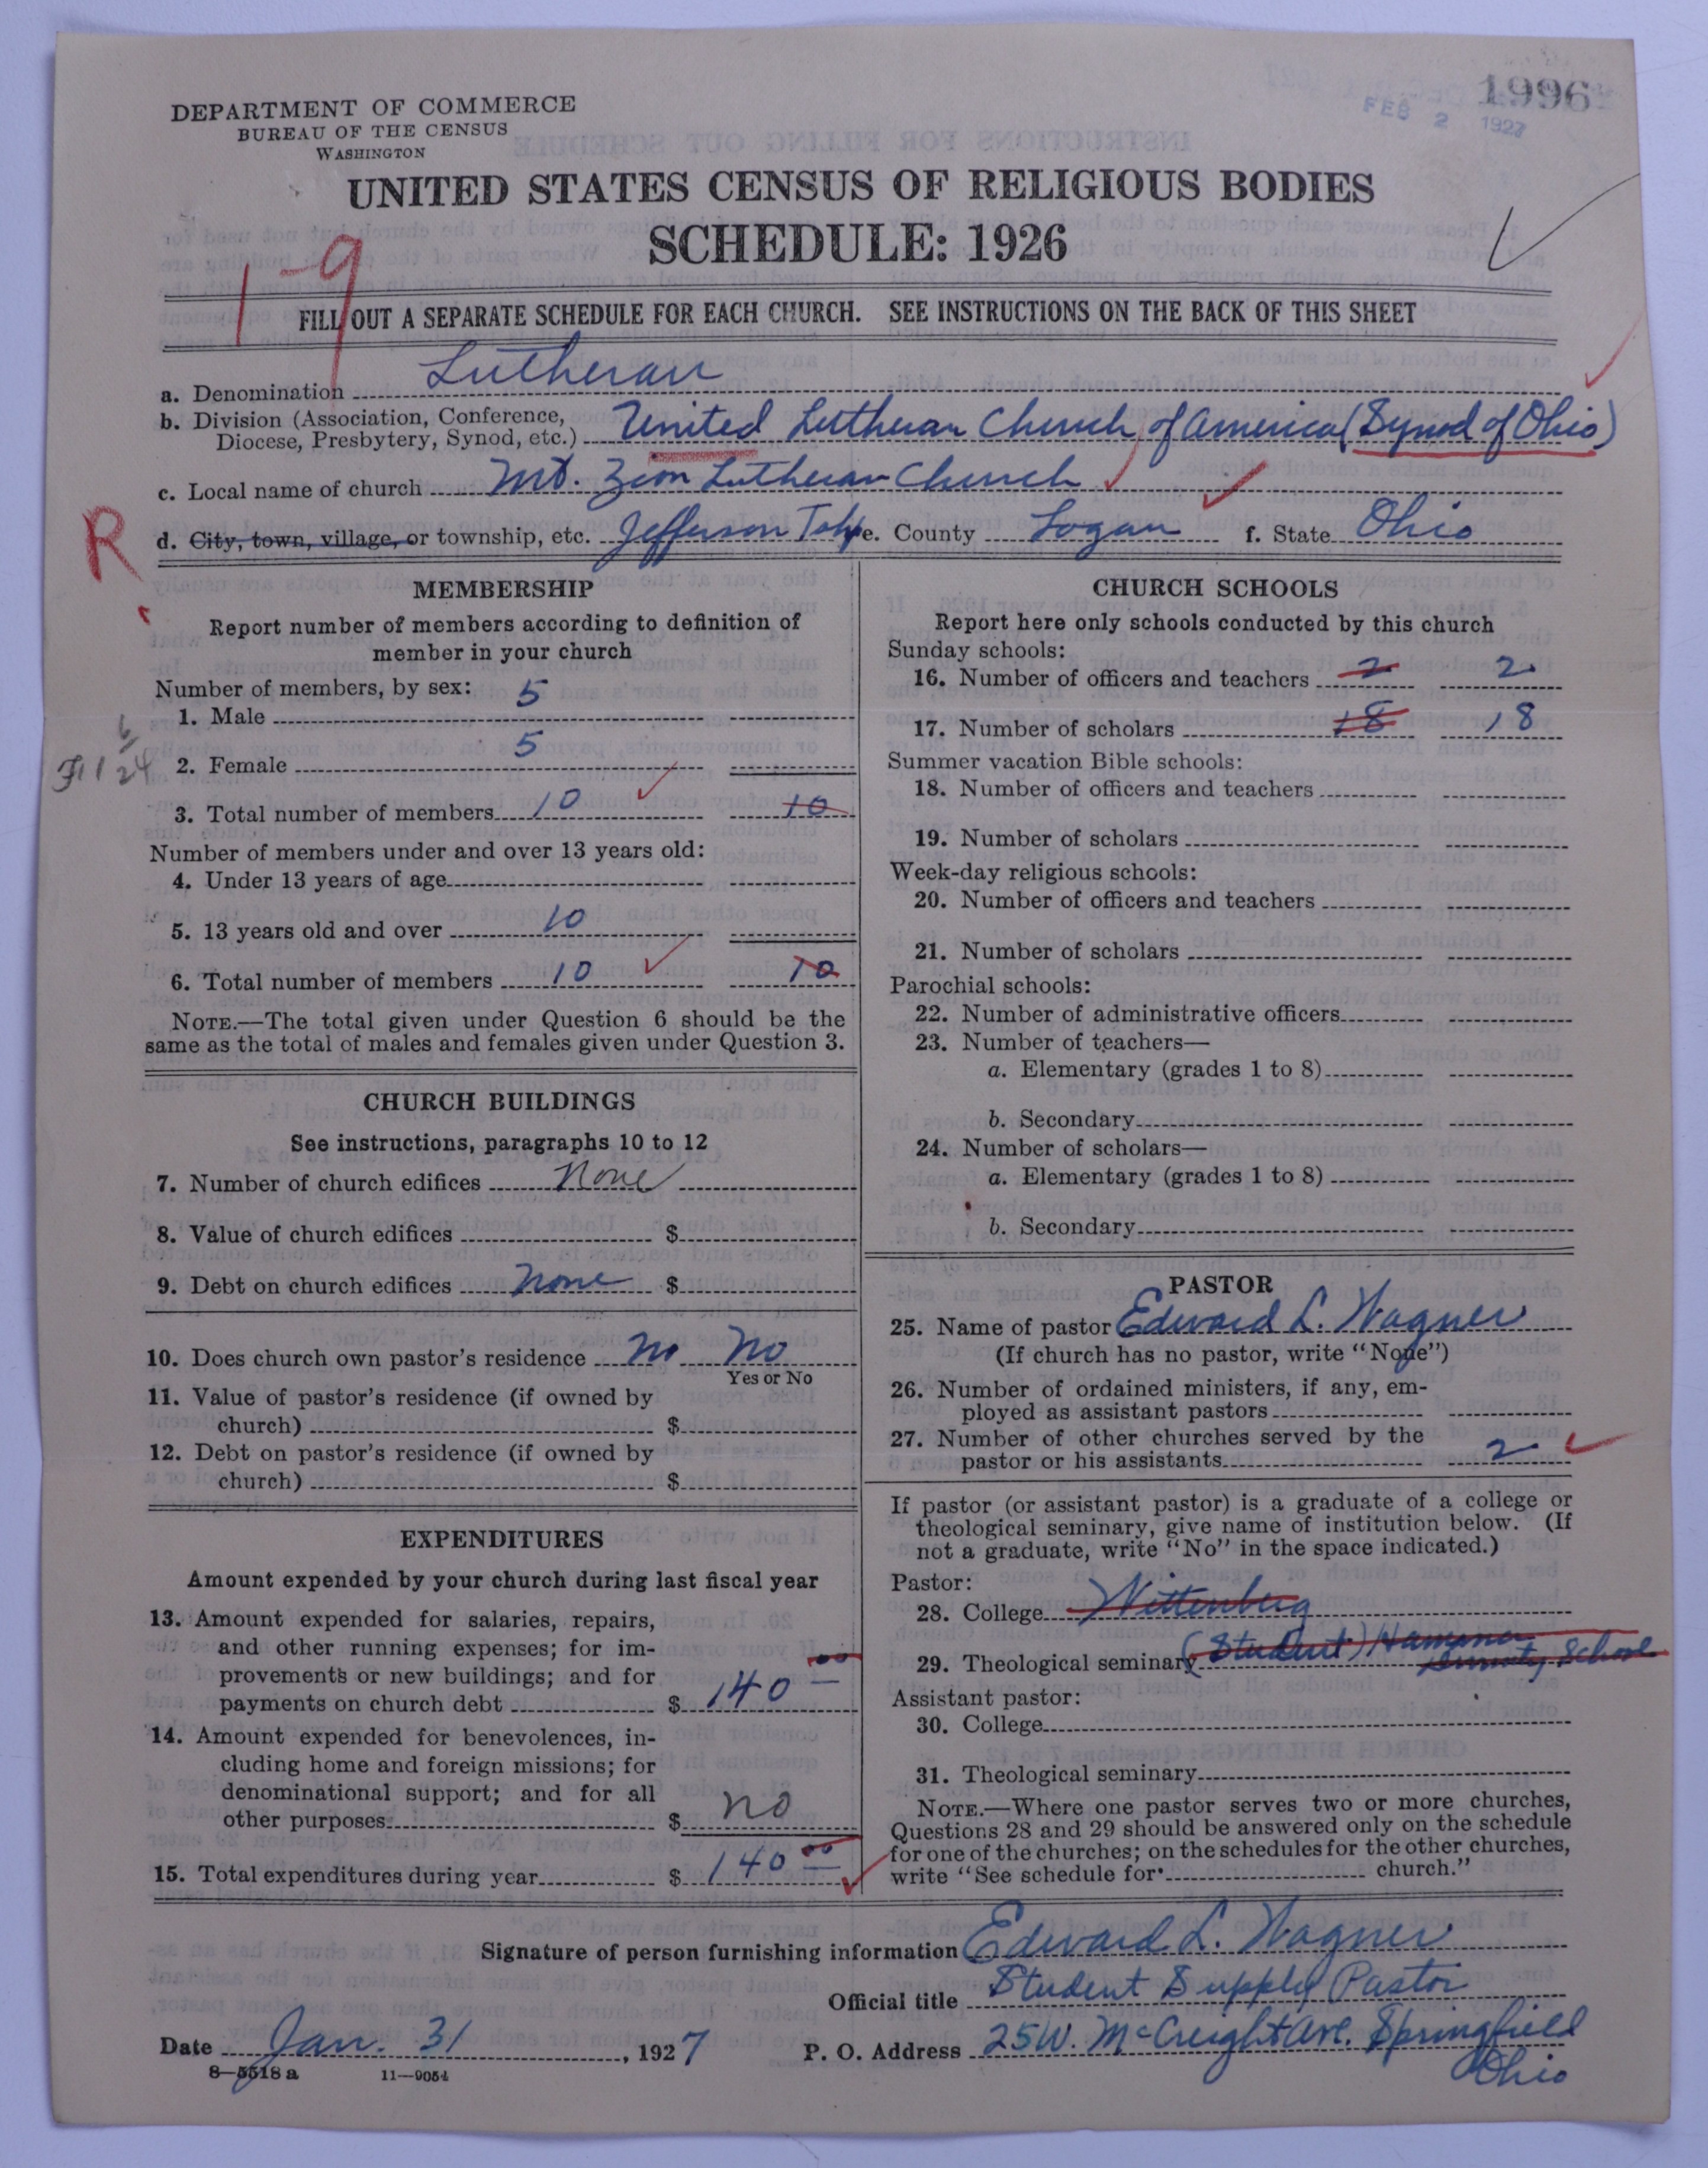 DEPARTMENT OF COMMERCE
BUREAU OF THE CENSUS
WASHINGTON
1996
FEB 2 1927
UNITED STATES CENSUS OF RELIGIOUS BODIES
SCHEDULE: 1926
1-9
FILL OUT A SEPARATE SCHEDULE FOR EACH CHURCH. SEE INSTRUCTIONS ON THE BACK OF THIS SHEET
a. Denomination Lutheran
b. Division (Association, Conference, Diocese, Presbytery, Synod, etc.) United Lutheran Church of America (Synod of Ohio)
c. Local name of church Mt. Zion Lutheran Church
R
d. City, town, village, or township, etc. Jefferson Tshp e. County Logan f. State Ohio
MEMBERSHIP
Report number of members according to definition of
member in your church
Number of members, by sex:
1. Male 5
2. Female 5
3. Total number of members 10 10
Number of members under and over 13 years old:
4. Under 13 years of age
5. 13 years old and over 10
6. Total number of members 10 10
NOTE.—The total given under Question 6 should be the
same as the total of males and females given under Question 3.
CHURCH BUILDINGS
See instructions, paragraphs 10 to 12
7. Number of church edifices None
8. Value of church edifices $
9. Debt on church edifices None $
10. Does church own pastor's residence No No
Yes or No
11. Value of pastor's residence (if owned by
church) $
12. Debt on pastor's residence (if owned by
church) $
EXPENDITURES
Amount expended by your church during last fiscal year
13. Amount expended for salaries, repairs,
and other running expenses; for im-
provements or new buildings; and for
payments on church debt $ 140 00
14. Amount expended for benevolences, in-
cluding home and foreign missions; for
denominational support; and for all
other purposes $ no
15. Total expenditures during year $ 140 00
CHURCH SCHOOLS
Report here only schools conducted by this church
Sunday schools:
16. Number of officers and teachers 2 2
17. Number of scholars 18 18
Summer vacation Bible schools:
18. Number of officers and teachers
19. Number of scholars
Week-day religious schools:
20. Number of officers and teachers
21. Number of scholars
Parochial schools:
22. Number of administrative officers
23. Number of teachers—
a. Elementary (grades 1 to 8)
b. Secondary
24. Number of scholars—
a. Elementary (grades 1 to 8)
b. Secondary
PASTOR
25. Name of pastor Edward L. Wagner
(If church has no pastor, write "None")
26. Number of ordained ministers, if any, em-
ployed as assistant pastors
27. Number of other churches served by the
pastor or his assistants 2
If pastor (or assistant pastor) is a graduate of a college or
theological seminary, give name of institution below. (If
not a graduate, write "No" in the space indicated.)
Pastor:
28. College Wittenberg
29. Theological seminary (Student) Hamma Divinity School
Assistant pastor:
30. College
31. Theological seminary
NOTE.—Where one pastor serves two or more churches,
Questions 28 and 29 should be answered only on the schedule
for one of the churches; on the schedules for the other churches,
write "See schedule for church."
Signature of person furnishing information Edward L. Wagner
Official title Student Supply Pastor
Date Jan. 31, 1927 P. O. Address 25 W. McCreight Ave. Springfield
Ohio
8—5518 a 11—9054